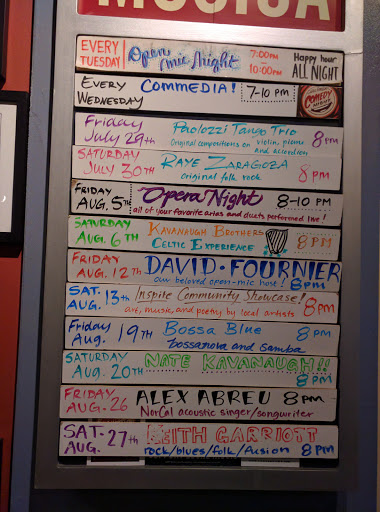 MUSICA
EVERY TUESDAY Open mic Night 7:00pm - 10:00pm Happy hour ALL NIGHT
EVERY WEDNESDAY COMMEDIA! 7-10 PM COMEDY
Friday July 29th Paolozzi Tango Trio 8pm
original compositions on violin, piano and accordion
SATURDAY JULY 30TH RAYE ZARAGOZA 8pm
original folk rock
FRIDAY AUG. 5TH Opera Night 8-10 PM
all of your favorite arias and duets performed live!
SATURDAY AUG. 6TH KAVANAUGH BROTHERS CELTIC EXPERIENCE 8PM
FRIDAY AUG. 12TH DAVID FOURNIER
our beloved open-mic host! 8pm
SAT. AUG. 13th Inspite Community Showcase! 8pm
art, music, and poetry by local artists
Friday Aug. 19TH Bossa Blue 8pm
bossanova and samba
SATURDAY AUG. 20TH NATE KAVANAUGH!!
8pm
FRIDAY AUG. 26 ALEX ABREU 8pm
NorCal acoustic singer/songwriter
SAT. AUG. 27th KEITH GARRIOTT
rock/blues/folk/fusion 8pm